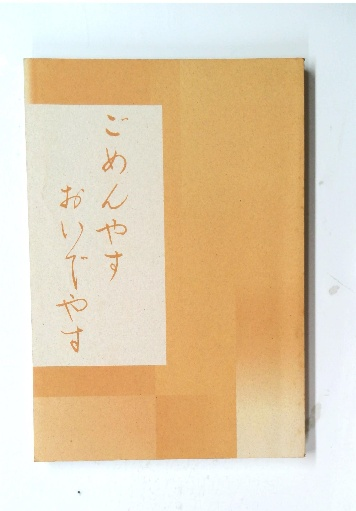 ごめんやす
おいでやす